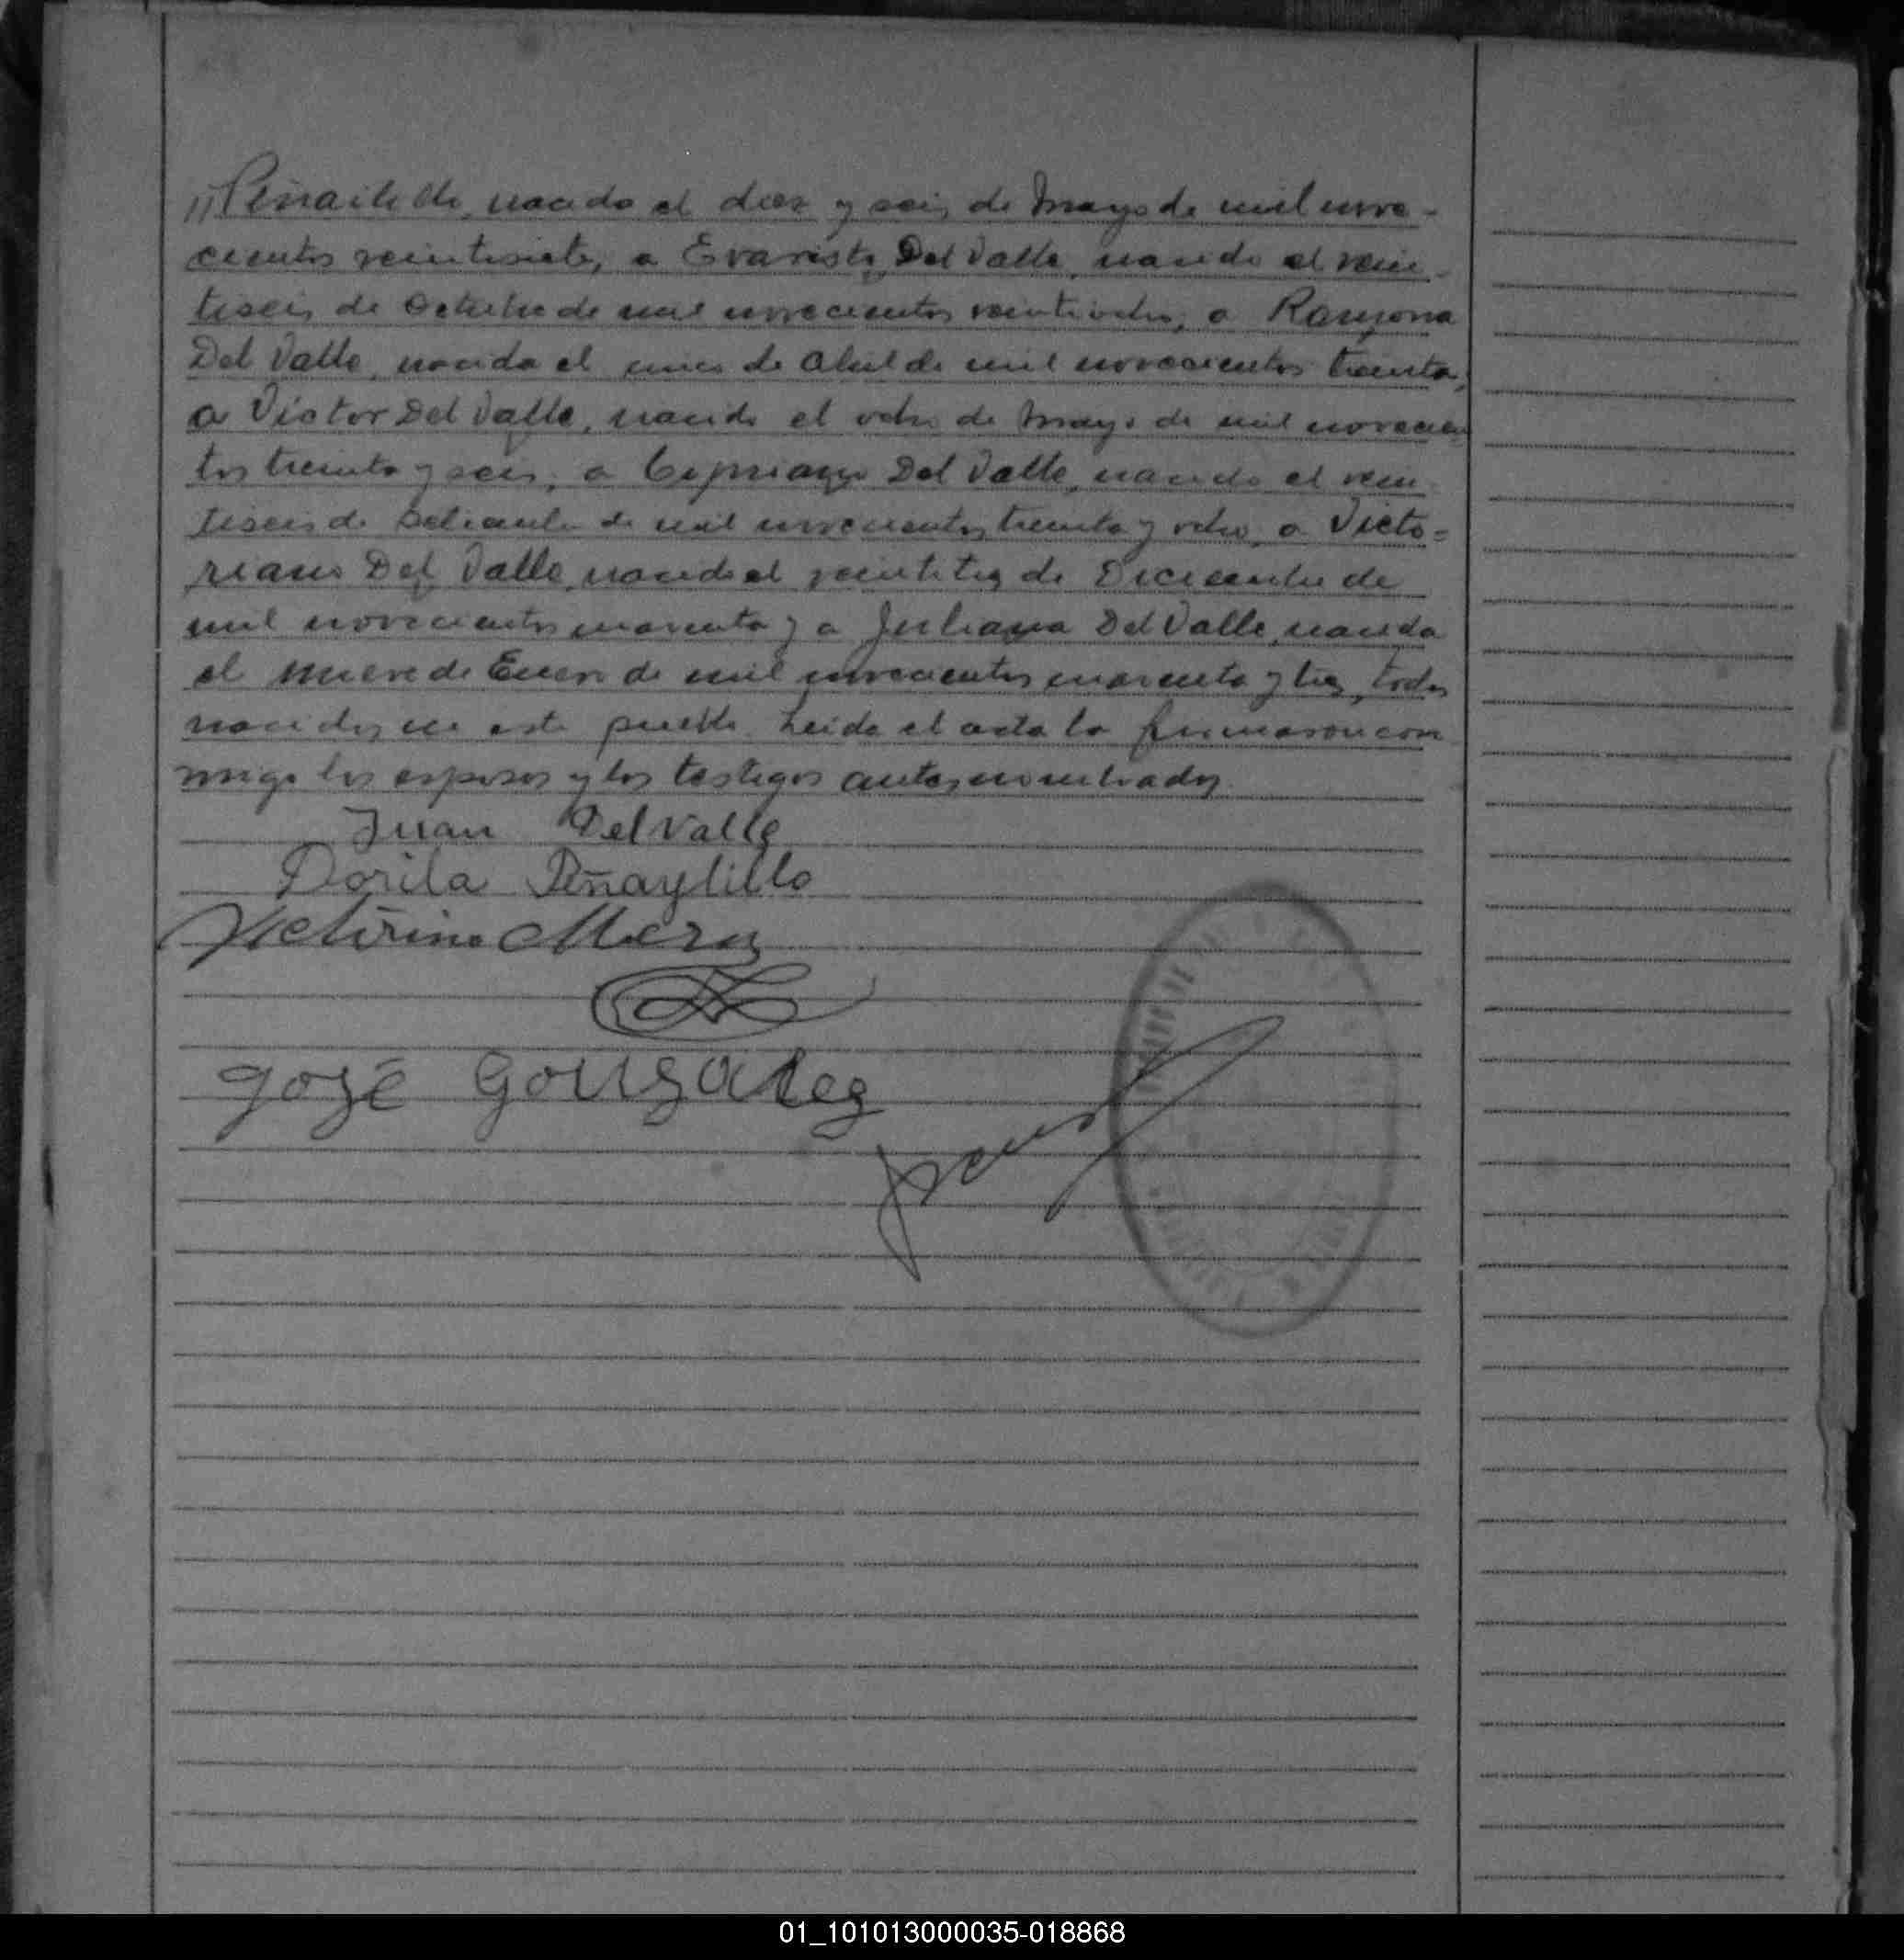 "Peñailillo, nacido el diez y seis de Mayo de mil nove-
cientos veintisiete, a Evaristo Del Valle, nacido el vein-
tiseis de Octubre de mil novecientos veintiocho, a Ramona
Del Valle, nacida el cinco de Abril de mil novecientos treinta,
a Victor Del Valle, nacido el ocho de Mayo de mil novecien
tos treinta y seis, a Cipriano Del Valle, nacido el vein
tiseis de Setiembre de mil novecientos treinta y ocho, a Victo=
riano Del Valle, nacido el veintitres de Diciembre de
mil novecientos cuarenta y a Juliana Del Valle, nacida
el nueve de Enero de mil novecientos cuarenta y tres, todos
nacidos en este pueblo. Leida el acta la firmaron con
migo los esposos y los testigos antes nombrados.
Juan Del Valle
Dorila Peñaylillo
Victorino Mera
José Gonzalez
01_101013000035-018868